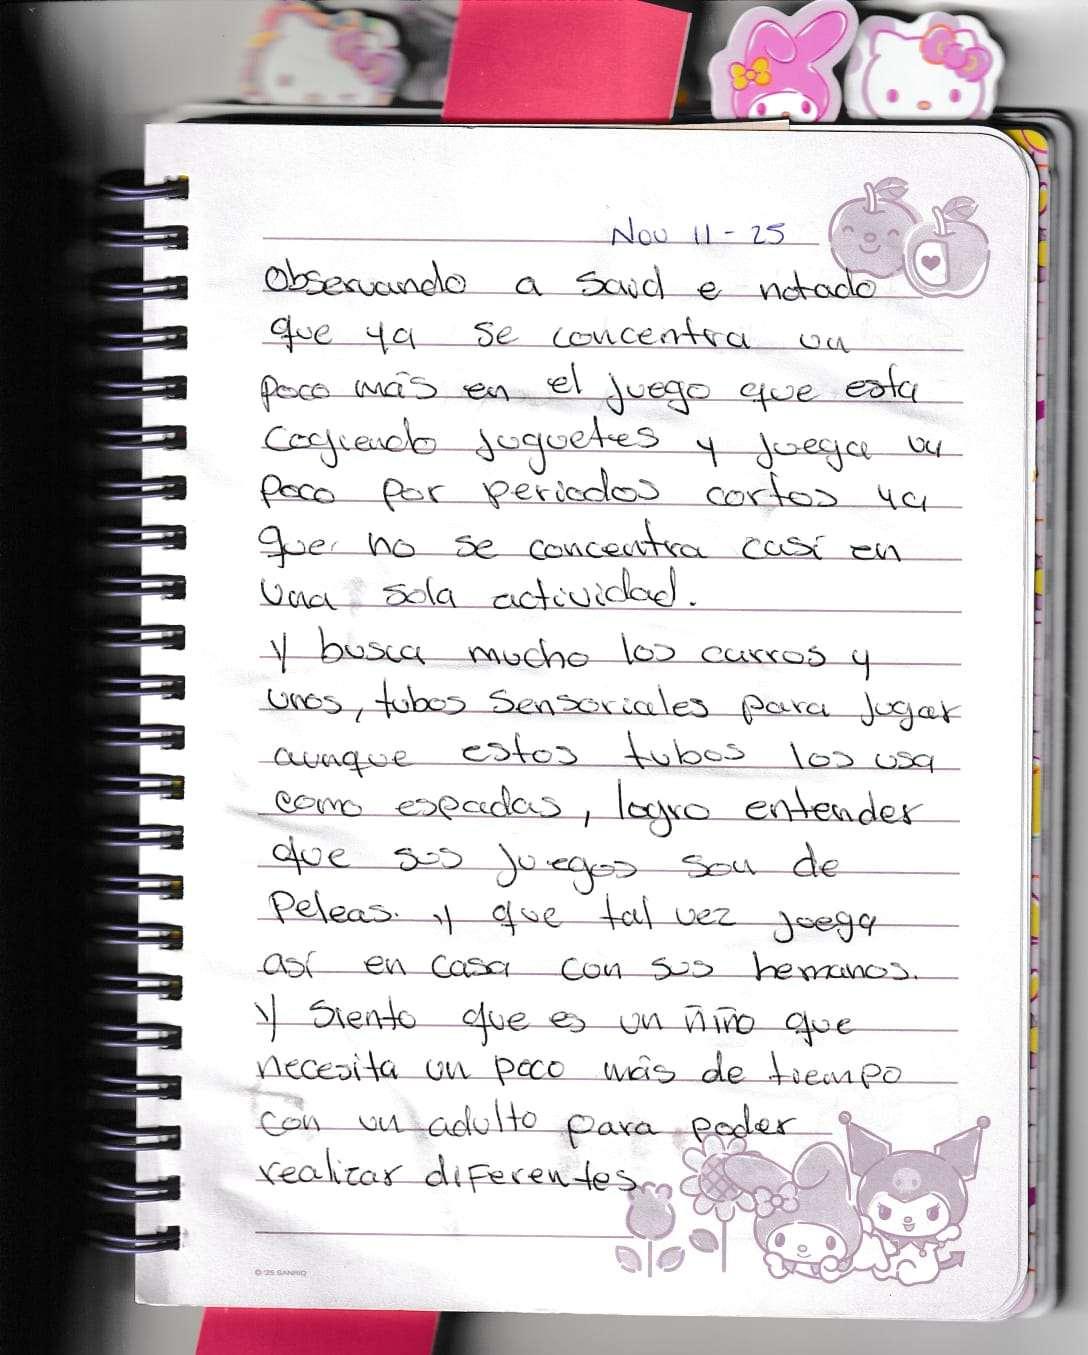 Nov 11-25
Observando a Said e notado
que ya se concentra un
poco más en el juego que esta
cogiendo juguetes y juega un
poco por periodos cortos ya
que no se concentra casí en
una sola actividad.
y busca mucho los carros y
unos, tubos sensoriales para jugar
aunque estos tubos los usa
como espadas, logro entender
que sus juegos son de
Peleas. y que tal vez juega
así en casa con sus hemanos.
y siento que es un ñiño que
necesita un poco más de tiempo
con un adulto para poder
realizar diferentes
© '25 SANRIO